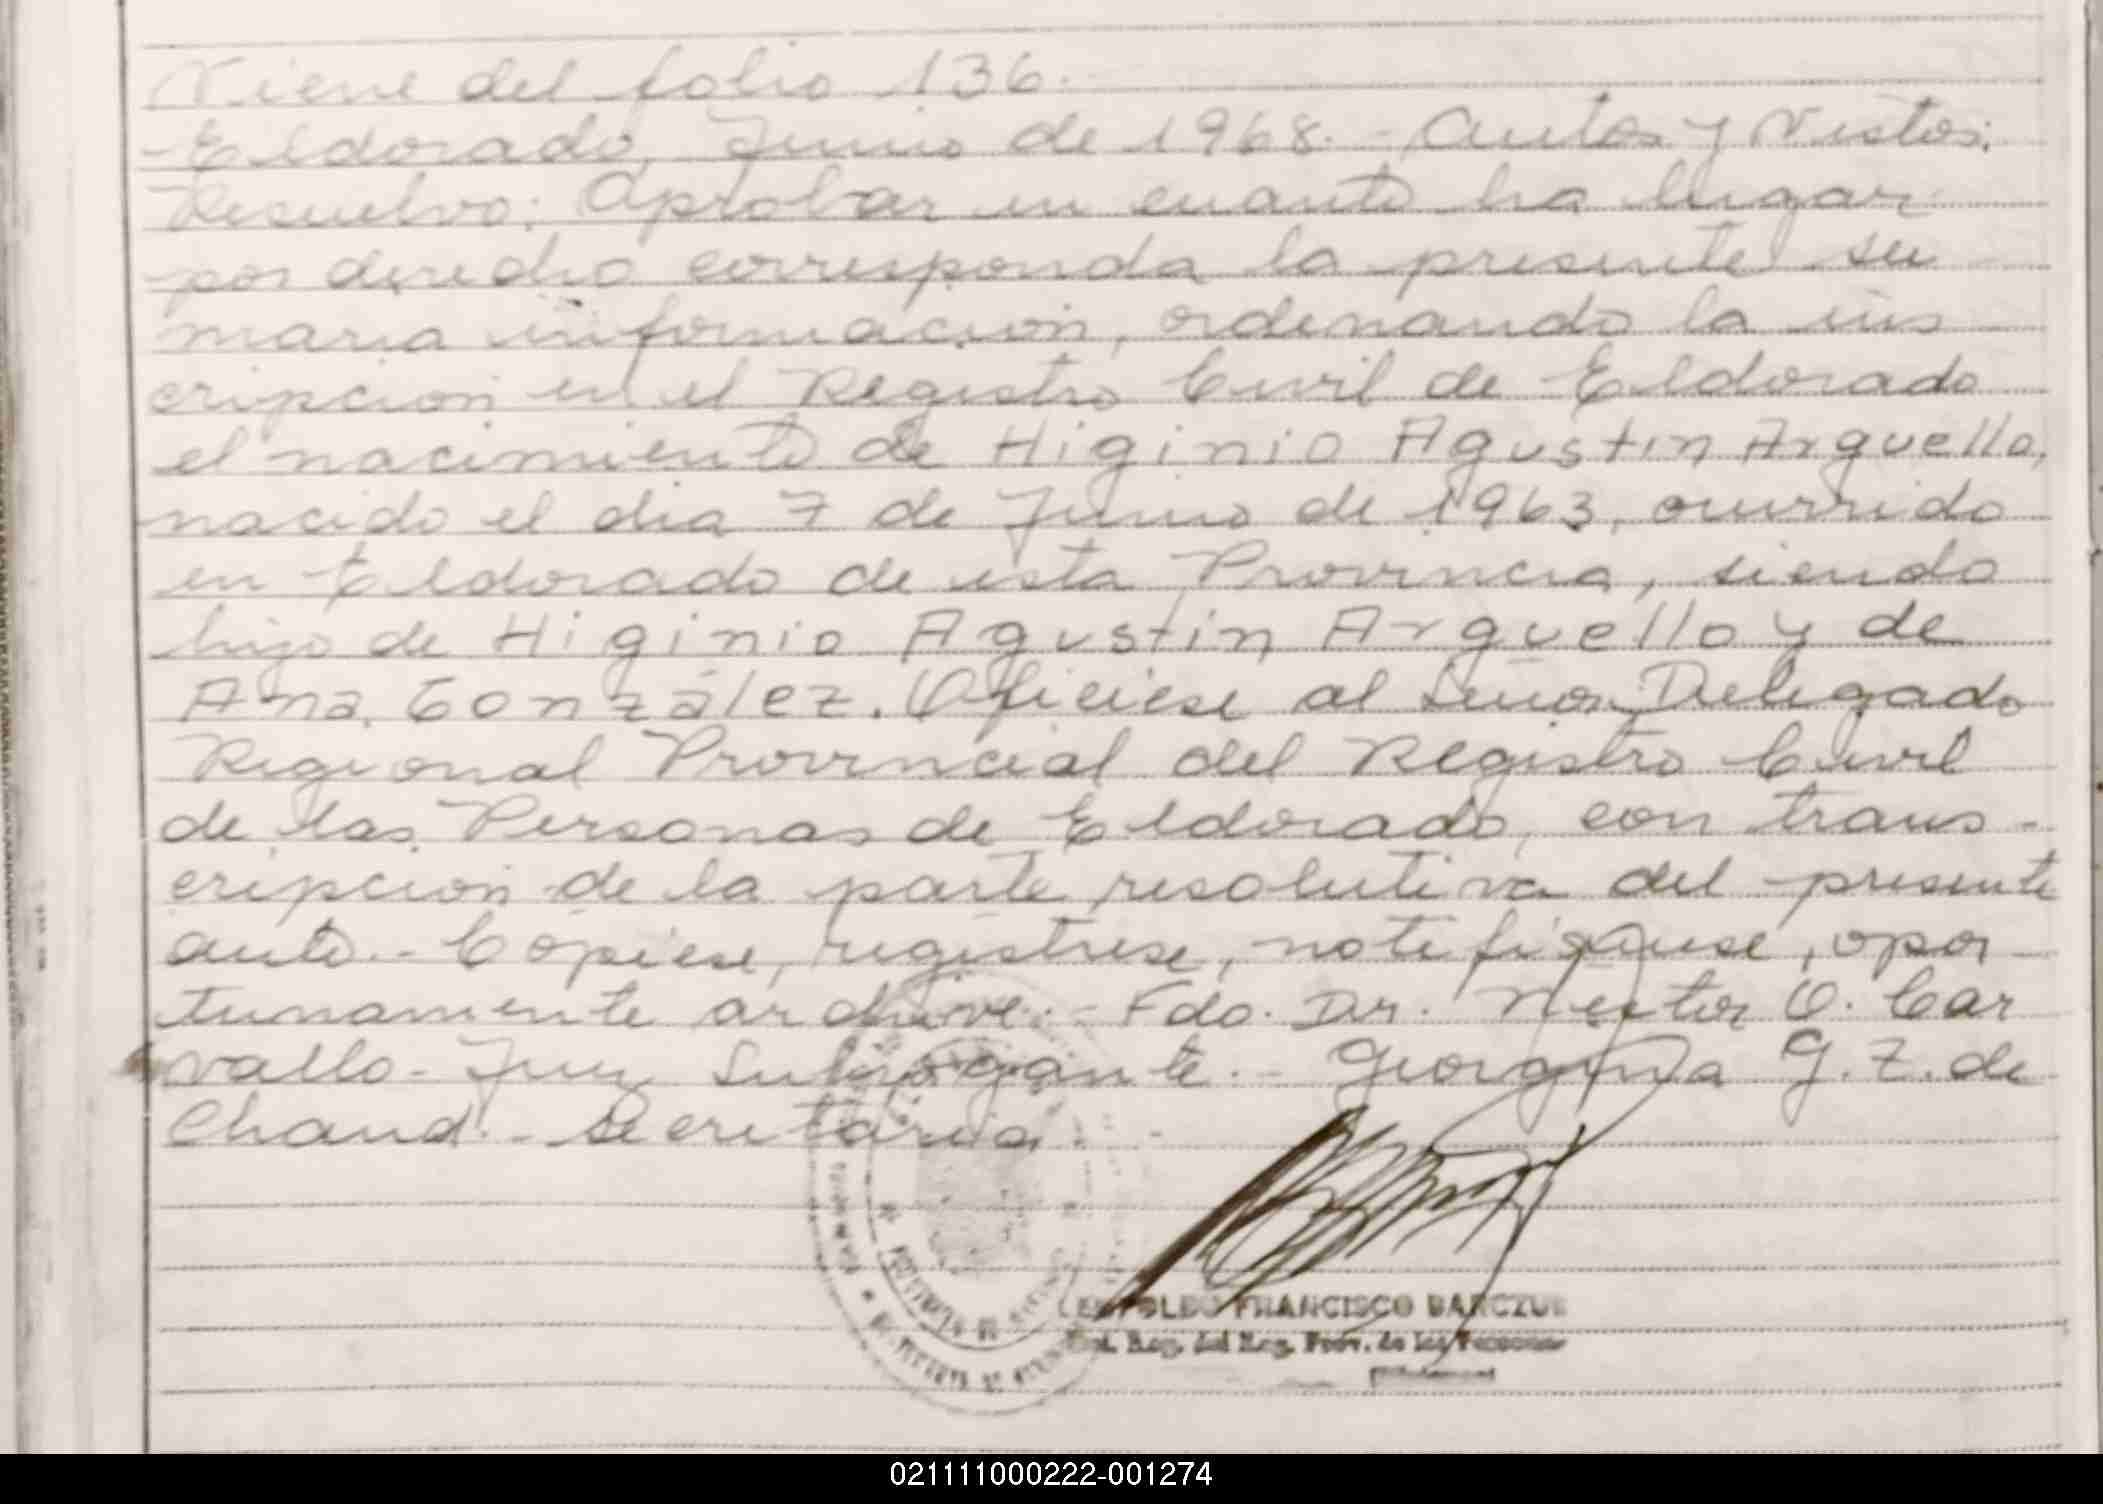 Viene del folio 136.
-Eldorado, Junio de 1968.- Autos y Vistos:
Resuelvo: Aprobar en cuanto ha lugar
por derecho corresponda la presente su
maria información, ordenando la ins
cripcion en el Registro Civil de Eldorado
el nacimiento de Higinio Agustin Arguello,
nacido el dia 7 de Junio de 1963, ocurrido
en Eldorado de esta Provincia, siendo
hijo de Higinio Agustin Arguello y de
Ana González. Ofíciese al Señor Delegado
Regional Provincial del Registro Civil
de las Personas de Eldorado, con trans-
cripcion de la parte resolutiva del presente
auto.- Cópiese, regístrese, notifíquese, opor-
tunamente archive.- Fdo. Dr. Nestor O. Car
vallo- Juez Subrogante.- Georgina G. Z. de
Chand.- Secretaria.-
FRANCISCO
Reg. del Reg. Prov. de las Personas
021111000222-001274